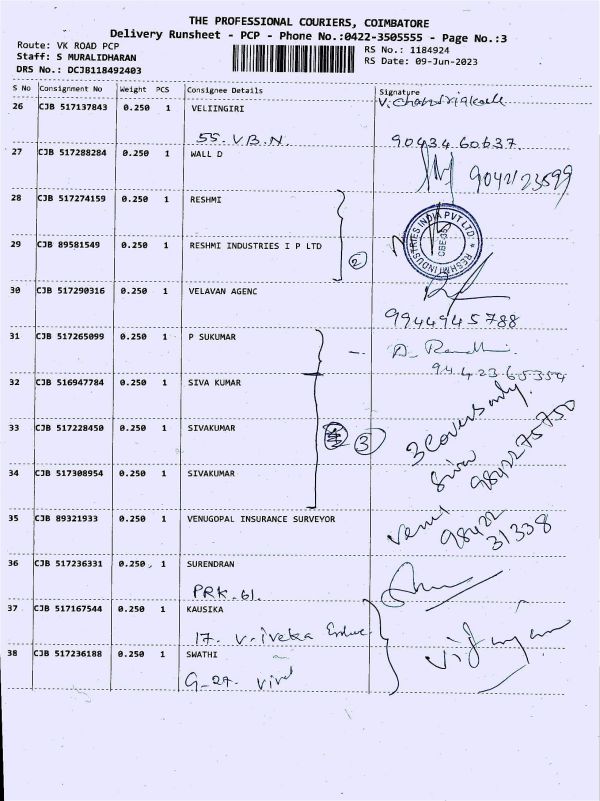 THE PROFESSIONAL COURIERS, COIMBATORE
Delivery Runsheet - PCP - Phone No.:0422-3505555 - Page No.:3
Route: VK ROAD PCP
RS No.: 1184924
Staff: S MURALIDHARAN
RS Date: 09-Jun-2023
DRS No.: DCJB118492403
S No Consignment No Weight PCS Consignee Details Signature
26 CJB 517137843 0.250 1 VELIINGIRI
55. V.B.N. 90434 60637.
27 CJB 517288284 0.250 1 WALL D
9042123599
28 CJB 517274159 0.250 1 RESHMI
RESHMI INDUSTRIES INDIA PVT LTD
29 CJB 89581549 0.250 1 RESHMI INDUSTRIES I P LTD
2
30 CJB 517290316 0.250 1 VELAVAN AGENC
9944945788
31 CJB 517265099 0.250 1 P SUKUMAR
94423 65354
32 CJB 516947784 0.250 1 SIVA KUMAR
3 Covers only.
33 CJB 517228450 0.250 1 SIVAKUMAR
3
Siva 9842275750
34 CJB 517308954 0.250 1 SIVAKUMAR
35 CJB 89321933 0.250 1 VENUGOPAL INSURANCE SURVEYOR
Venu 98422 31338
36 CJB 517236331 0.250 1 SURENDRAN
PRK-61.
37 CJB 517167544 0.250 1 KAUSIKA
17.
38 CJB 517236188 0.250 1 SWATHI
G-27.